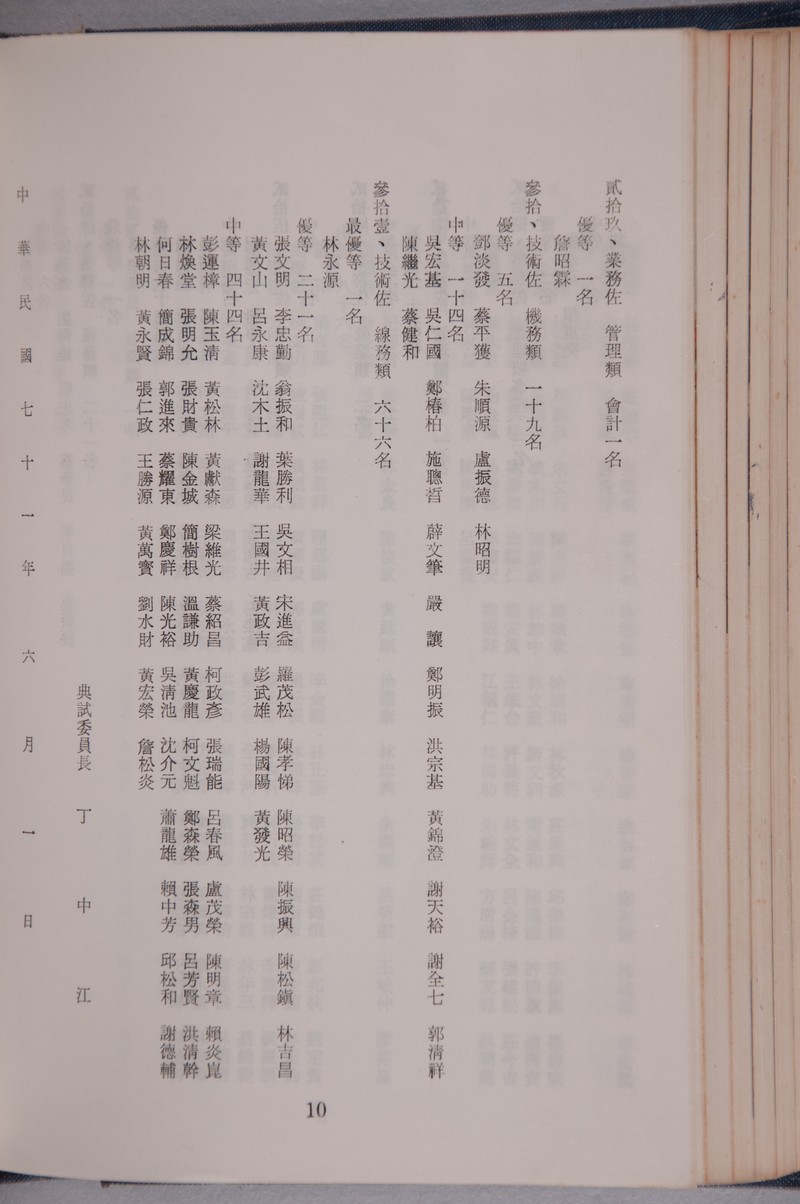 貳拾玖、業務佐　管理類　會計一名
優等　一名
詹昭霖
參拾、技術佐　機務類　一十九名
優等　五名
鄧淡發　蔡平獲　朱順源　盧振德　林昭明
中等　一十四名
吳宏基　吳仁國　鄭椿柏　施聰哲　薛文筆　嚴　讓　鄭明振　洪宗基　黃錦澄　謝天裕　謝全七　郭清祥
陳繼光　蔡健和
參拾壹、技術佐　線務類　六十六名
最優等　一名
林永源
優等　二十一名
張文明　李忠勤　翁振和　葉勝利　吳文相　宋進益　羅茂松　陳孝悌　陳昭榮　陳振興　陳松鎮　林吉昌
黃文山　呂永康　沈木土　謝龍華　王國井　黃政吉　彭武雄　楊國陽　黃發光
中等　四十四名
彭運樟　陳玉清　黃松林　黃獻森　梁維光　蔡紹昌　柯政彥　張瑞能　呂春風　盧茂榮　陳明章　賴炎崑
林煥堂　張明允　張財貴　陳金城　簡樹根　溫謙助　黃慶龍　柯文魁　鄭森榮　張森男　呂芳賢　洪清幹
何日春　簡成錦　郭進來　蔡耀東　鄭慶祥　陳光裕　吳清池　沈介元　蕭龍雄　賴中芳　邱松和　謝德輔
林朝明　黃永賢　張仁政　王勝源　黃萬賓　劉水財　黃宏榮　詹松炎
典試委員長　丁　中　江
中華民國七十一年六月一日
10